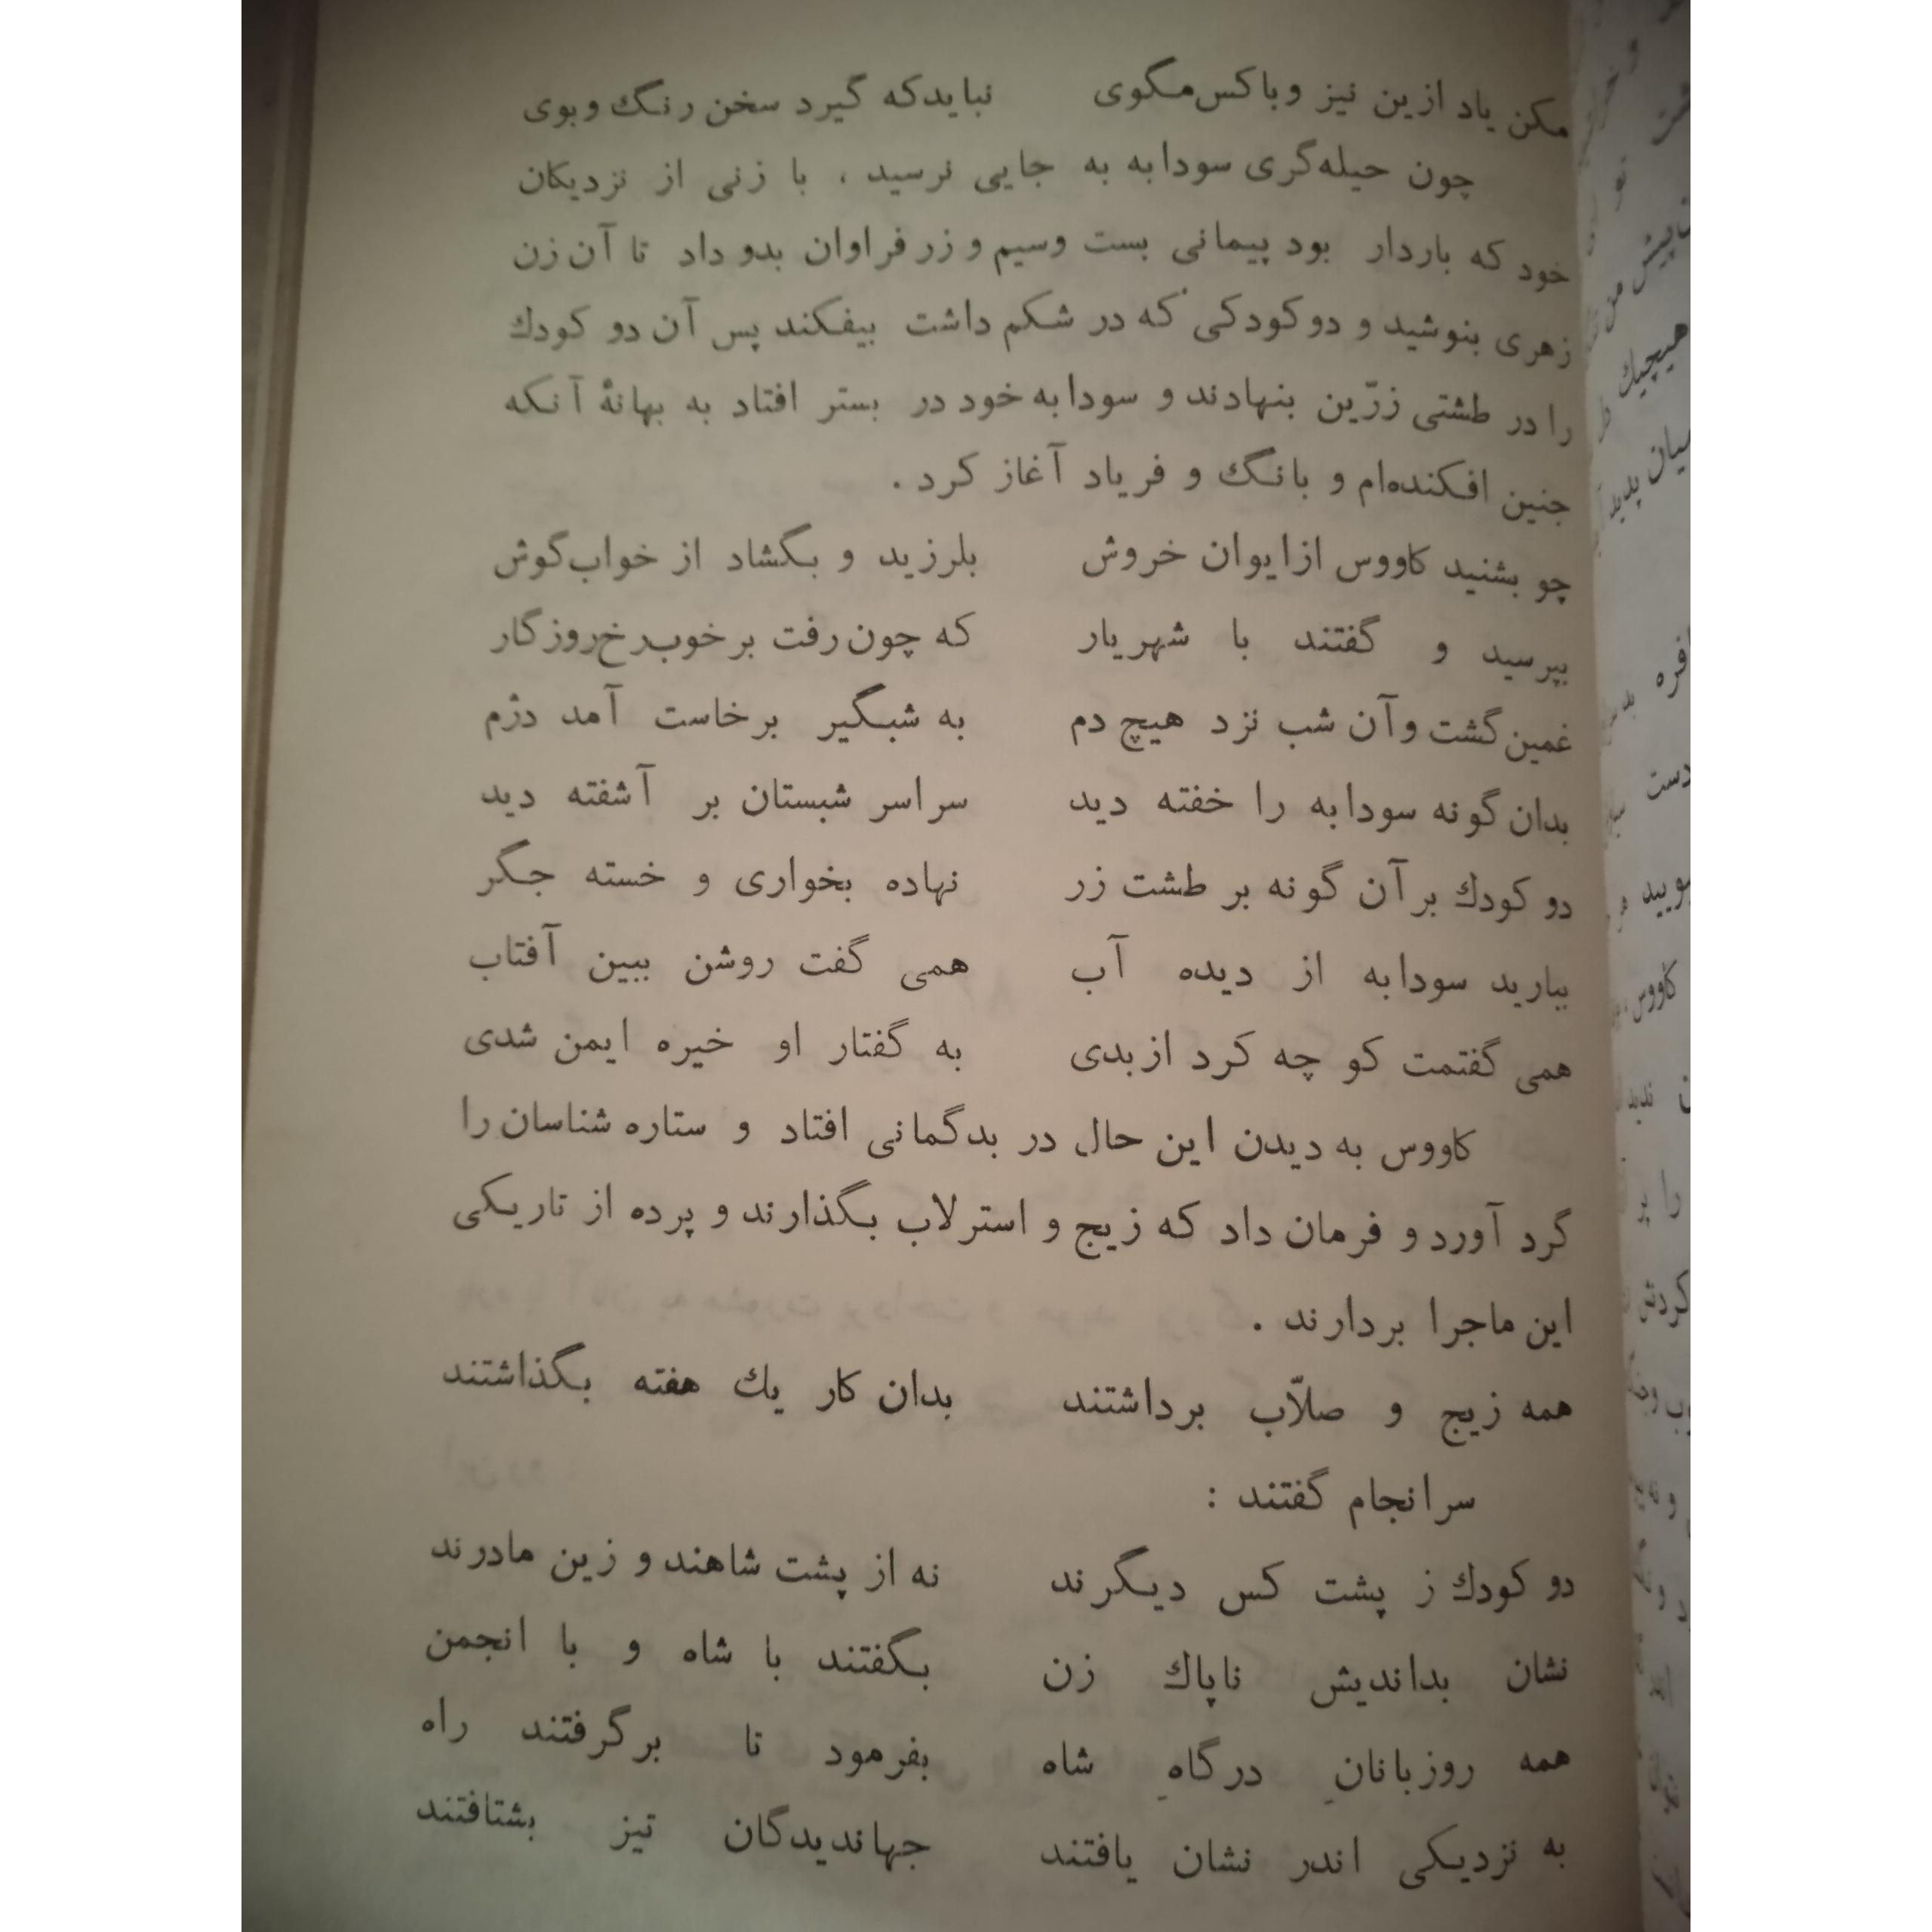 مکن یاد ازین نیز وباکس‌مگوی نبایدکه گیرد سخن رنگ وبوی
چون حیله‌گری سودابه به جایی نرسید ، با زنی از نزدیکان
خود که باردار بود پیمانی بست وسیم و زر فراوان بدو داد تا آن زن
زهری بنوشید و دو کودکی که در شکم داشت بیفکند پس آن دو کودك
را در طشتی زرّین بنهادند و سودابه خود در بستر افتاد به بهانهٔ آنکه
جنین افکنده‌ام و بانگ و فریاد آغاز کرد .
چو بشنید کاووس ازایوان خروش بلرزید و بگشاد از خواب‌گوش
بپرسید و گفتند با شهریار که چون رفت برخوب‌رخ‌روزگار
غمین‌گشت وآن شب نزد هیچ دم به شبگیر برخاست آمد دژم
بدان گونه سودابه را خفته دید سراسر شبستان بر آشفته دید
دو کودك برآن گونه بر طشت زر نهاده بخواری و خسته جگر
ببارید سودابه از دیده آب همی گفت روشن ببین آفتاب
همی گفتمت کو چه کرد ازبدی به گفتار او خیره ایمن شدی
کاووس به دیدن این حال در بدگمانی افتاد و ستاره شناسان را
گرد آورد و فرمان داد که زیج و استرلاب بگذارند و پرده از تاریکی
این ماجرا بردارند .
همه زیج و صلاّب برداشتند بدان کار یك هفته بگذاشتند
سرانجام گفتند :
دو کودك ز پشت کس دیگرند نه از پشت شاهند و زین مادرند
نشان بداندیش ناپاك زن بگفتند با شاه و با انجمن
همه روزبانانِ درگاهِ شاه بفرمود تا برگرفتند راه
به نزدیکی اندر نشان یافتند جهاندیدگان تیز بشتافتند